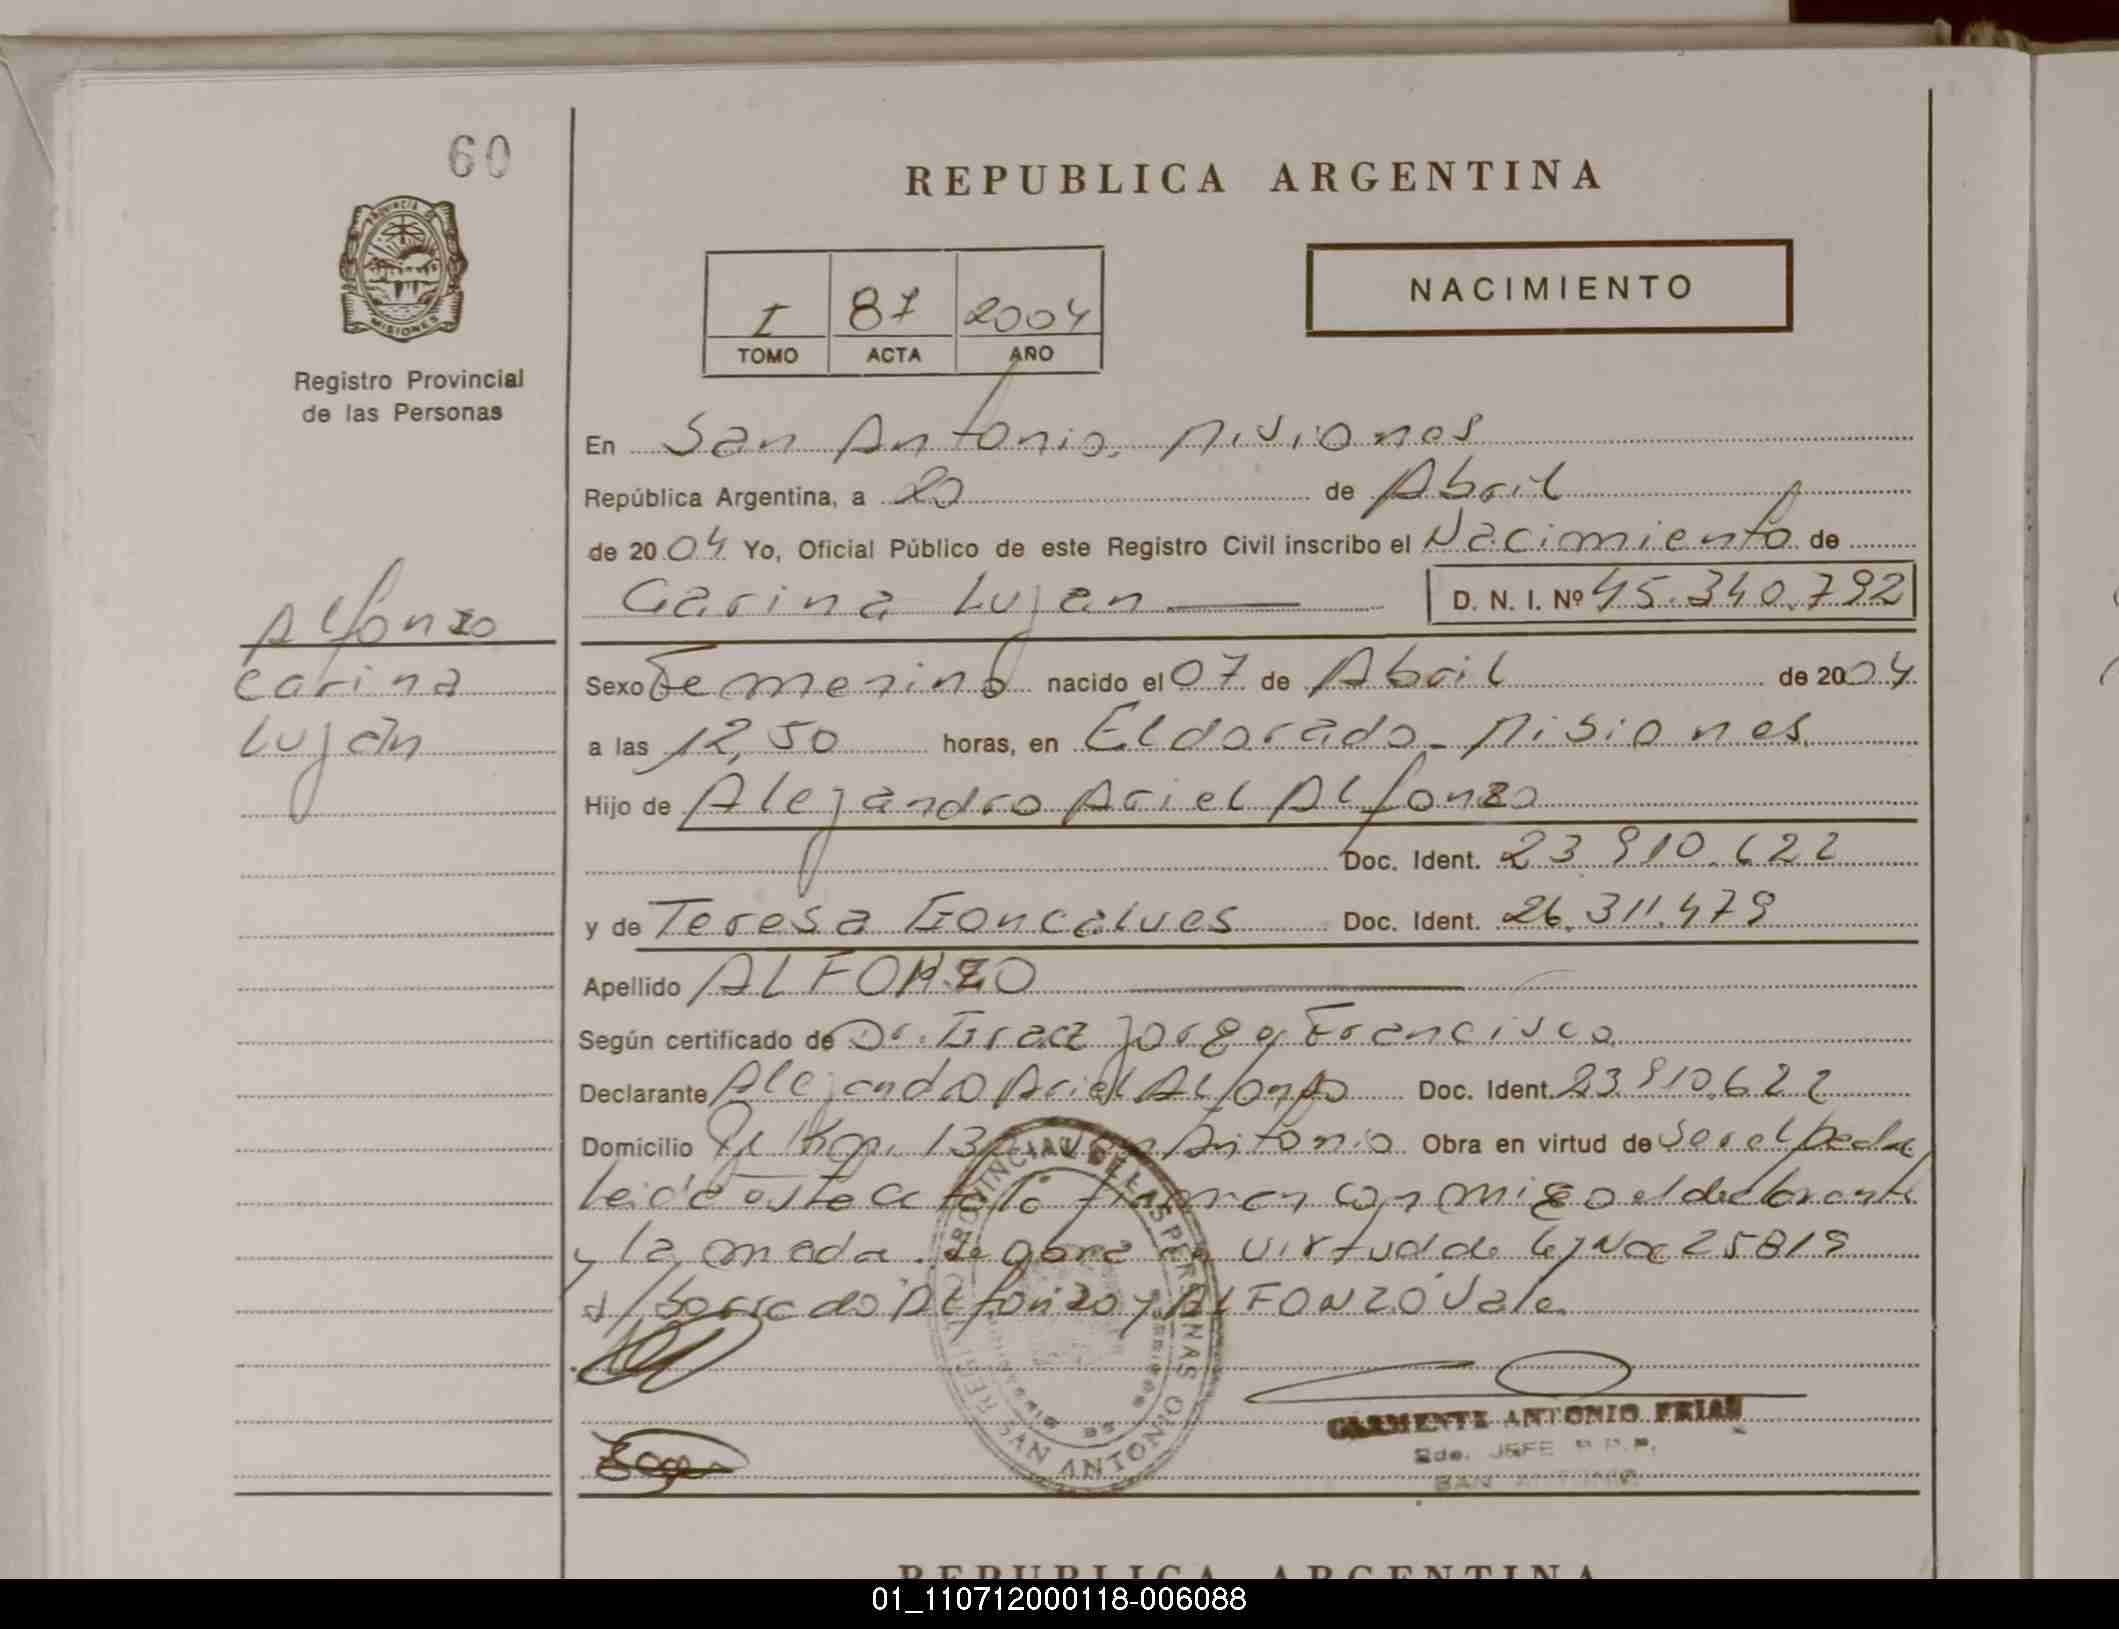 60
REPUBLICA ARGENTINA
PROVINCIA DE
MISIONES
NACIMIENTO
I 87 2004
TOMO ACTA AÑO
Registro Provincial
de las Personas
En San Antonio, Misiones
República Argentina, a 20 de Abril
de 2004 Yo, Oficial Público de este Registro Civil inscribo el Nacimiento de
Carina Lujan D. N. I. Nº 45.340.792
Alfonzo
Carina
Luján
Sexo Femenino nacido el 07 de Abril de 2004
a las 12,50 horas, en Eldorado - Misiones.
Hijo de Alejandro Ariel Alfonzo
Doc. Ident. 23.910.622
y de Teresa Goncalves Doc. Ident. 26.311.479
Apellido ALFONZO
Según certificado de Dr. Jorge Francisco
Declarante Alejandro Ariel Alfonzo Doc. Ident. 23.910.622
Domicilio Km. 13 San Antonio Obra en virtud de ser el padre
leida este acta la firman conmigo el declarante
y la madre. Se obra en virtud de Ley No 25819
s/borrado Alfonzo y ALFONZO Vale.
REGISTRO PROVINCIAL DE LAS PERSONAS
SAN ANTONIO
MISIONES
CLEMENTE ANTONIO FRIAS
JEFE R.P.P.
SAN ANTONIO
REPUBLICA ARGENTINA
01_110712000118-006088